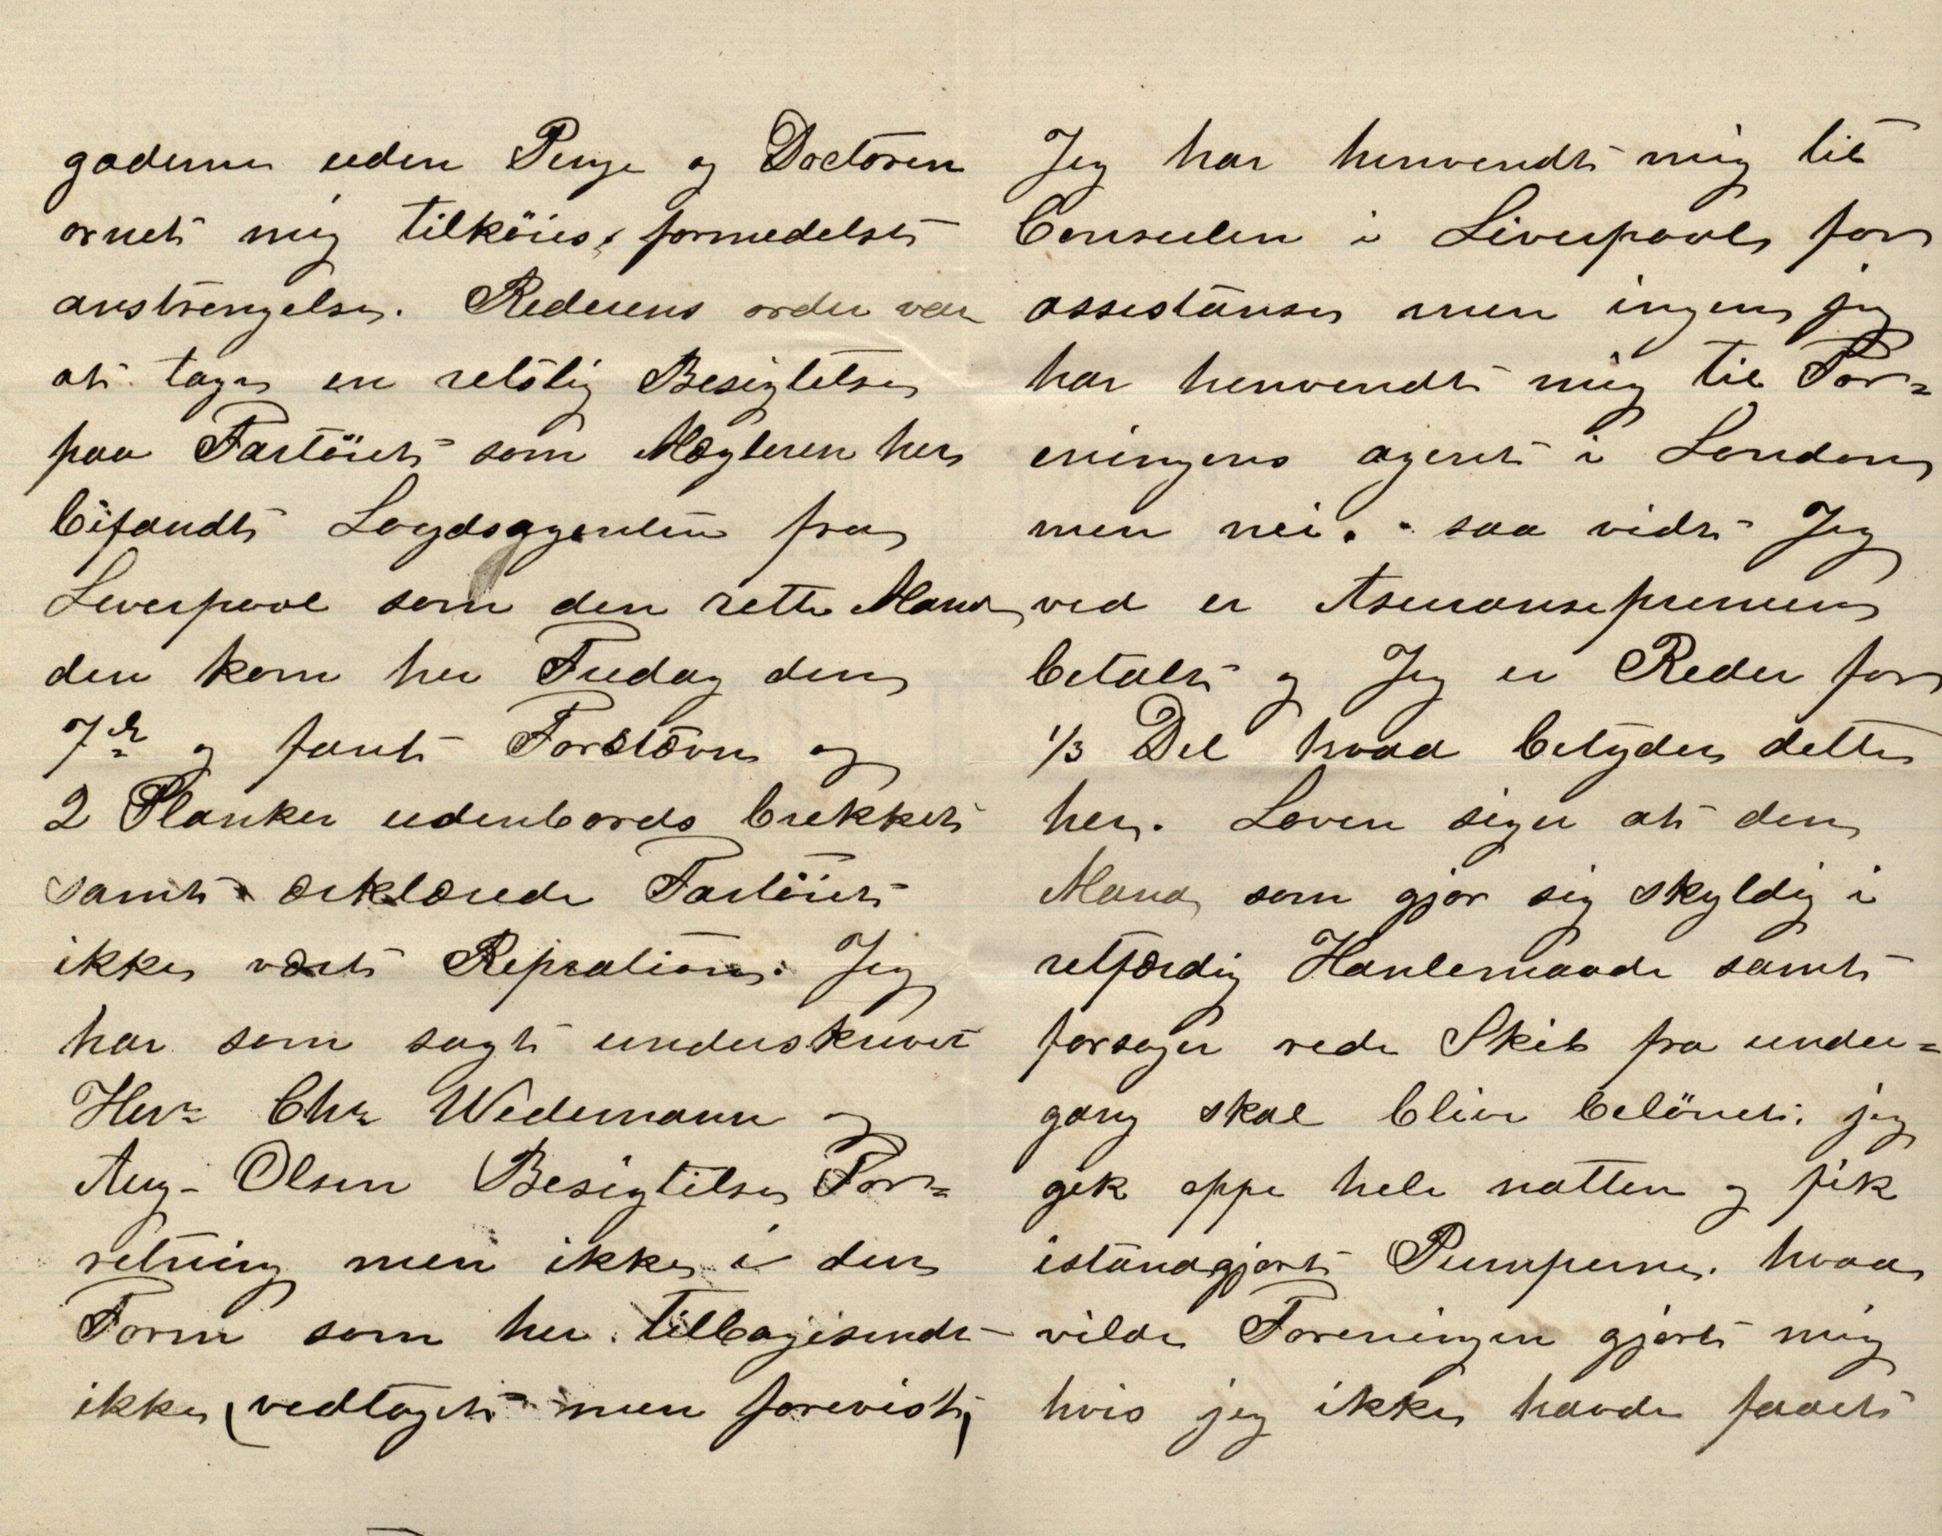 gaderne uden Penge og Doctoren
ornet mig tilköies formedelst
anstrengelse. Rederens order var
at tage en retslig Besigtelse
paa Fartöiet som Mægleren her
bifandt Loydsagenten fra
Liverpool som den rette Mand
den kom her Fredag den
7de og fant Forstævn og
2 Planker udenbords brekket
samt ærklærede Fartöiet
ikke vært Repration. Jeg
har som sagt underskrevet
Herr Chr Wedemann og
Aug- Olsen Besigtelse For=
retning men ikke i den
Form som her tilbagisendt
ikke (vedtaget men forevist)
Jeg har henvendt mig til
Consulen i Liverpool for
assistanse men ingen jeg
har henvendt mig til For=
eningens agent i London
men nei. saa vidt Jeg
ved er Asuransepremien
betalt og Jeg er Reder for
1/3 Del hvad betyder dette
her. Loven siger at den
Mand som gjør sig skyldig i
retfærdig Hanlemaade samt
forsøger rede Skib fra under=
gang skal blive belönet. jeg
gik oppe hele natten og fik
istandgjort Pumperne. hvad
vilde Foreningen gjort mig
hvis jeg ikke havde faaet